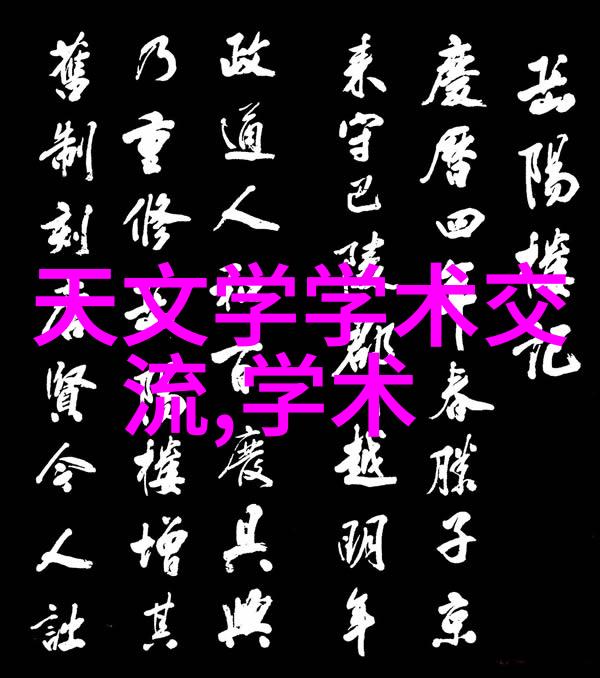 天文学学术交
流,学术
岳陽樓記
慶曆四年春滕子京
来守巴陵郡越明年
政通人和百廢具興
乃重修岳陽樓增其
舊制刻唐賢今人詩